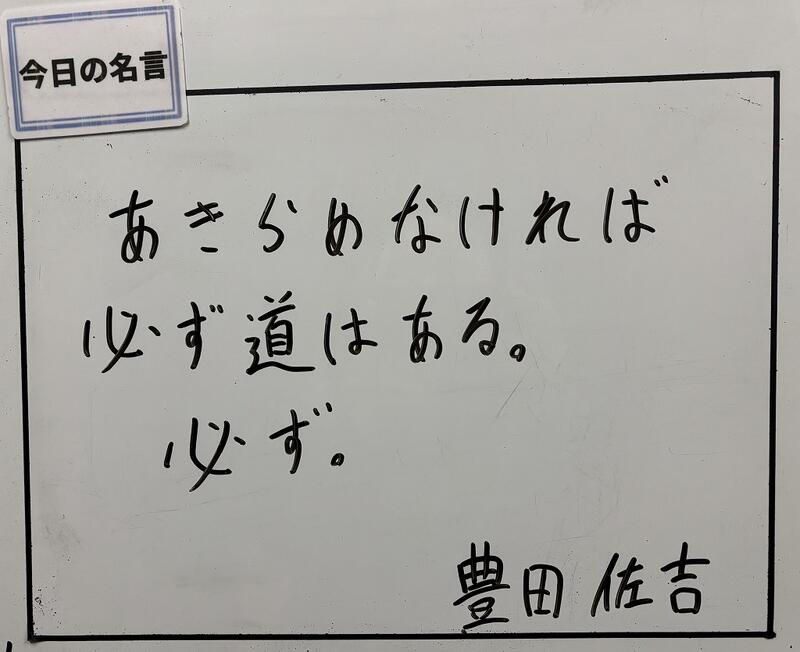 今日の名言
あきらめなければ
必ず道はある。
必ず。
豊田佐吉